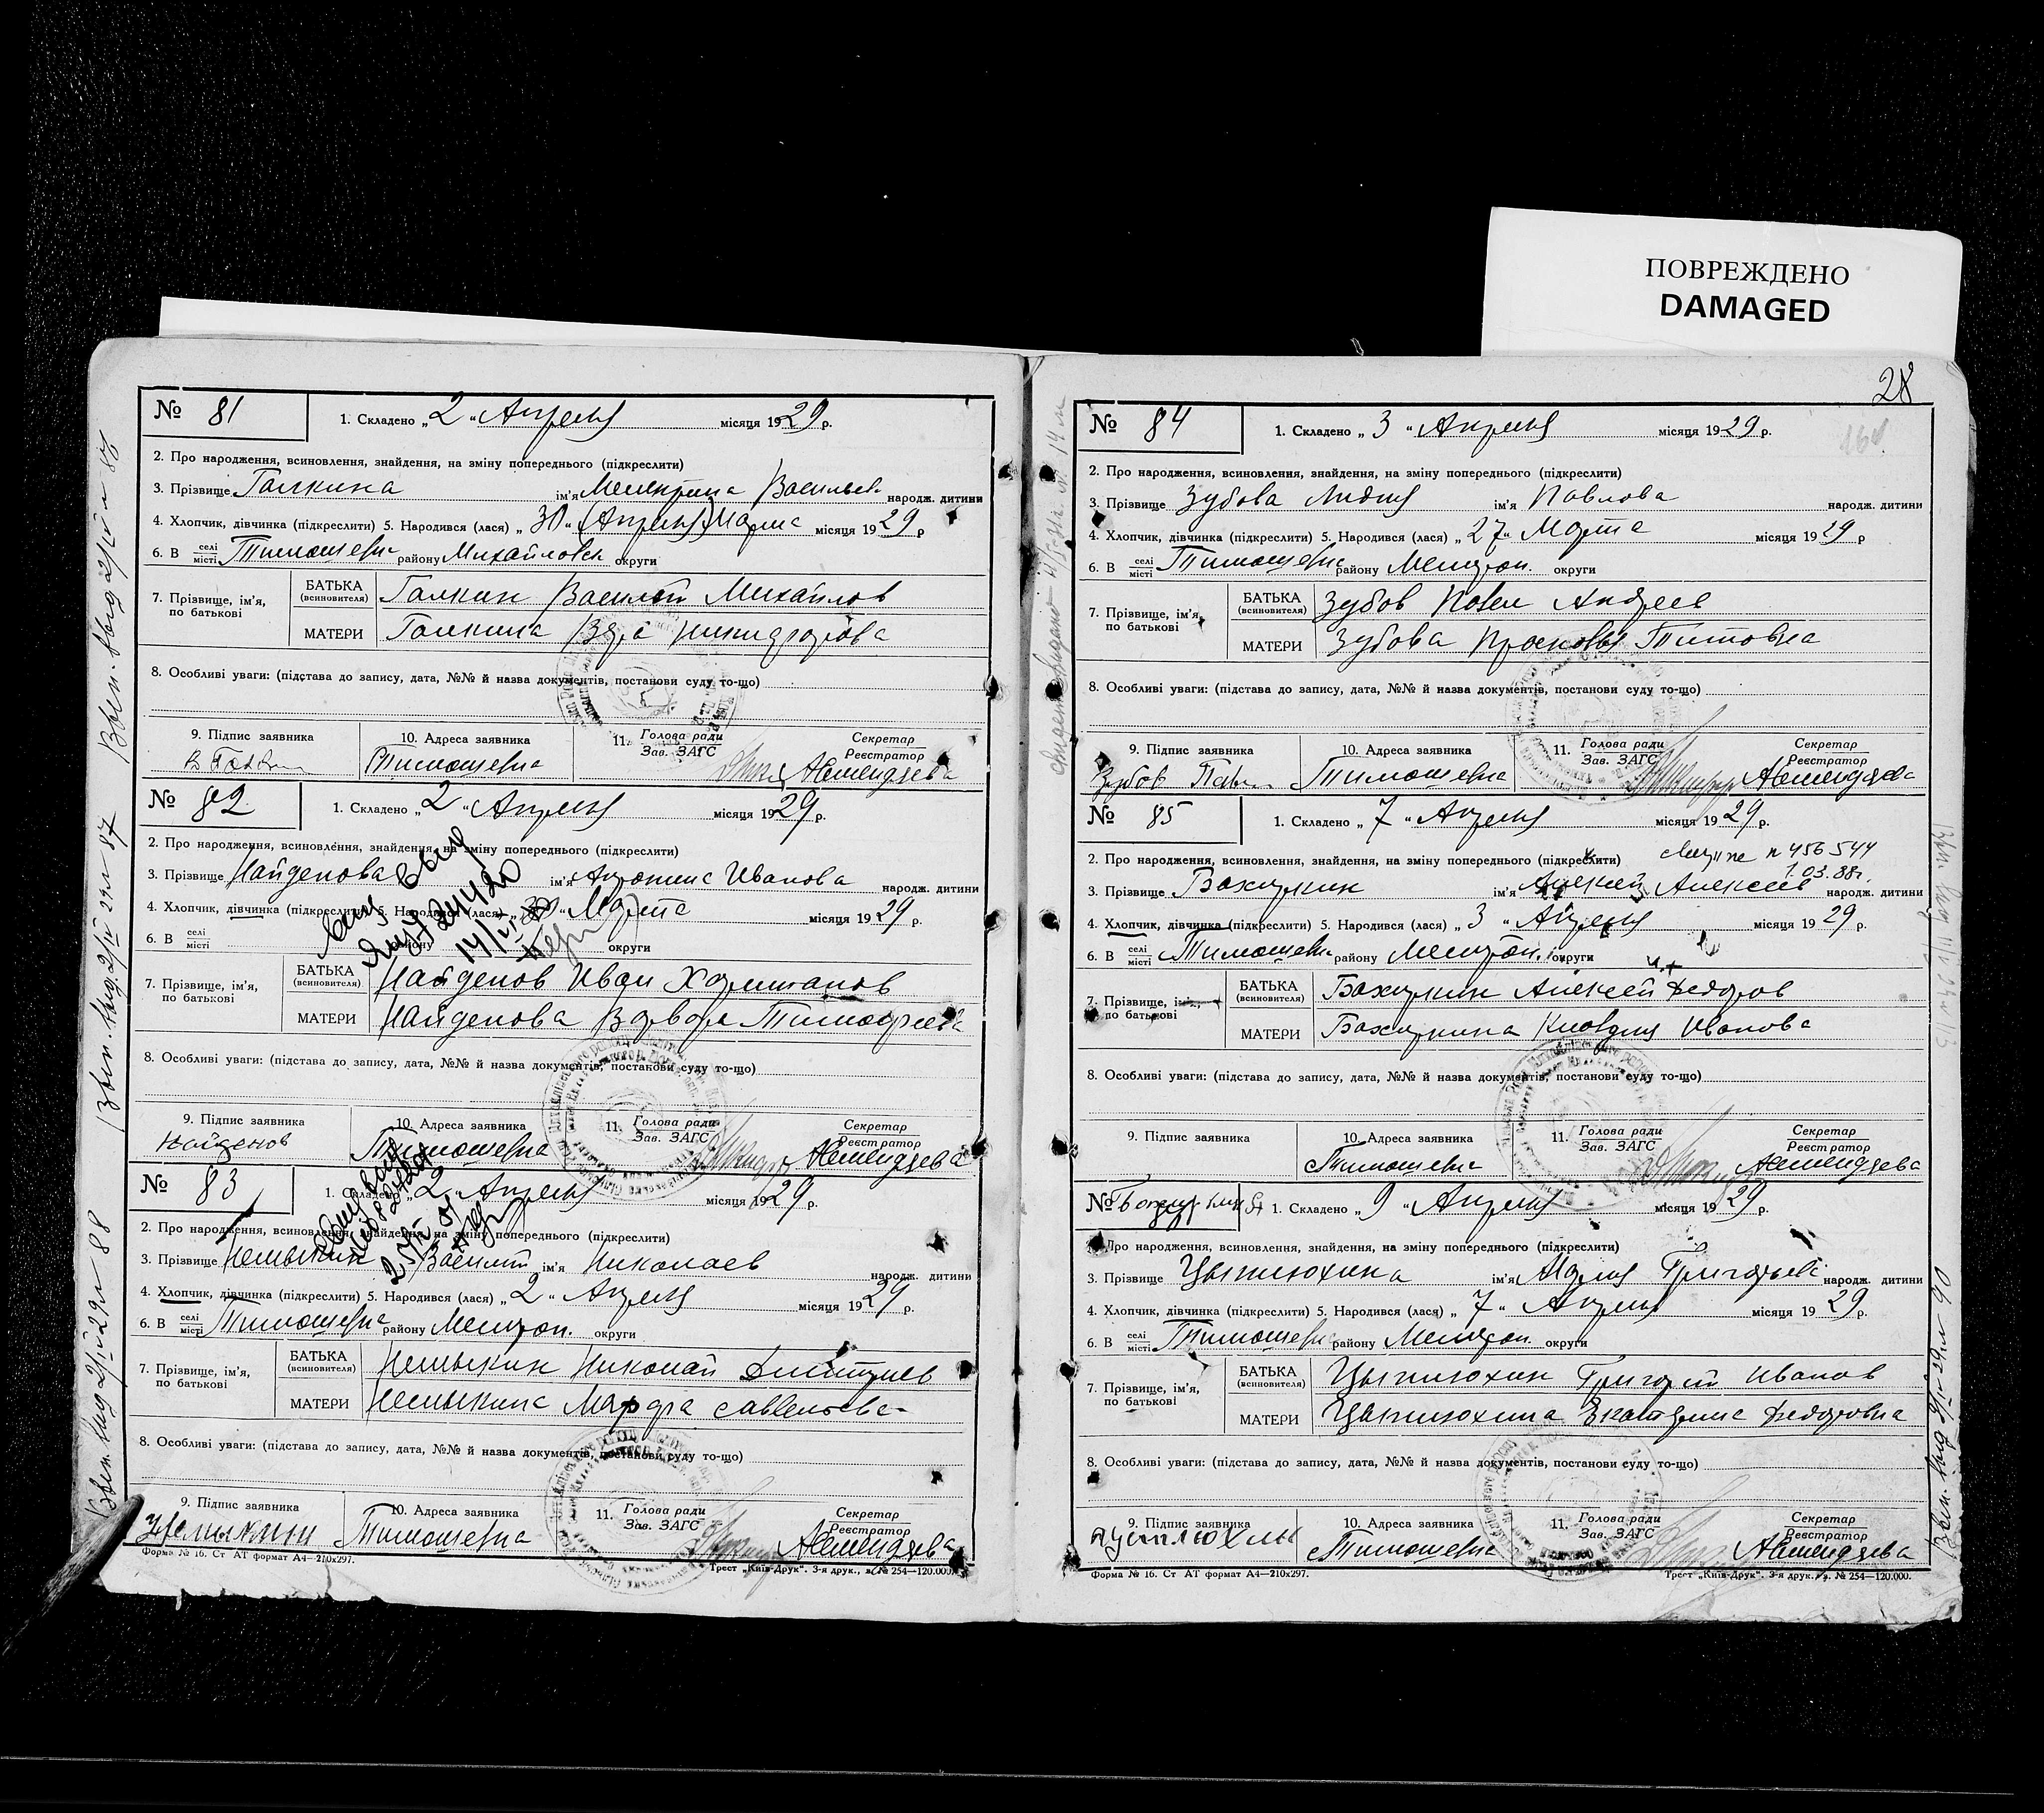 ПОВРЕЖДЕНО
DAMAGED
28
№ 81
1. Складено „2“ Апреля місяця 1929 р.
2. Про народження, всиновлення, знайдення, на зміну попереднього (підкреслити)
3. Прізвище Галкина ім'я Васильев. народж. дитини
4. Хлопчик, дівчинка (підкреслити) 5. Народився (лася) „30“ (Апреля) Марта місяця 1929 р
6. В селі місті Тимошевка району Михайловск округи
7. Прізвище, ім'я, по батькові
БАТЬКА (всиновителя) Галкин Василий Михайлов
МАТЕРИ Галкина Вера Никифорова
8. Особливі уваги: (підстава до запису, дата, №№ й назва документів, постанови суду то-що)
9. Підпис заявника
10. Адреса заявника Тимошевка
11. Голова ради Зав. ЗАГС
Секретар Реєстратор
№ 82
1. Складено „2“ Апреля місяця 1929 р.
2. Про народження, всиновлення, знайдення, на зміну попереднього (підкреслити)
3. Прізвище Найденова ім'я Иванова народж. дитини
4. Хлопчик, дівчинка (підкреслити) 5. Народився (лася) „30“ Марта місяця 1929 р.
6. В селі місті району округи
7. Прізвище, ім'я, по батькові
БАТЬКА (всиновителя) Найденов Иван Харитонов
МАТЕРИ Найденова Варвара Тимофеева
8. Особливі уваги: (підстава до запису, дата, №№ й назва документів, постанови суду то-що)
9. Підпис заявника Найденов
10. Адреса заявника Тимошевка
11. Голова ради Зав. ЗАГС
Секретар Реєстратор
№ 83
1. Складено „2“ Апреля місяця 1929 р.
2. Про народження, всиновлення, знайдення, на зміну попереднього (підкреслити)
3. Прізвище Немыкин Василий ім'я Николаев народж. дитини
4. Хлопчик, дівчинка (підкреслити) 5. Народився (лася) „2“ Апреля місяця 1929 р.
6. В селі місті Тимошевка району Мелитоп. округи
7. Прізвище, ім'я, по батькові
БАТЬКА (всиновителя) Немыкин Николай Дмитриев
МАТЕРИ Немыкина Марфа Савельева
8. Особливі уваги: (підстава до запису, дата, №№ й назва документів, постанови суду то-що)
9. Підпис заявника Немыкин
10. Адреса заявника Тимошевка
11. Голова ради Зав. ЗАГС
Секретар Реєстратор
Форма № 16. Ст АТ формат А4—210х297.
Трест „Київ-Друк“. 3-я друк., з. № 254—120.000.
№ 84
1. Складено „3“ Апреля місяця 1929 р.
2. Про народження, всиновлення, знайдення, на зміну попереднього (підкреслити)
3. Прізвище Зубова Лидия ім'я Павлова народж. дитини
4. Хлопчик, дівчинка (підкреслити) 5. Народився (лася) „27“ Марта місяця 1929 р
6. В селі місті Тимошевка району Мелитоп. округи
7. Прізвище, ім'я, по батькові
БАТЬКА (всиновителя) Зубов Павел Андреев
МАТЕРИ Зубова Прасковья Титовна
8. Особливі уваги: (підстава до запису, дата, №№ й назва документів, постанови суду то-що)
9. Підпис заявника Зубов
10. Адреса заявника Тимошевка
11. Голова ради Зав. ЗАГС
Секретар Реєстратор
№ 85
1. Складено „7“ Апреля місяця 1929 р.
2. Про народження, всиновлення, знайдення, на зміну попереднього (підкреслити)
456544
1.03.88г.
3. Прізвище Бахиркин ім'я Алексей Алексеев народж. дитини
4. Хлопчик, дівчинка (підкреслити) 5. Народився (лася) „3“ Апреля місяця 1929 р.
6. В селі місті Тимошевка району Мелитоп. округи
7. Прізвище, ім'я, по батькові
БАТЬКА (всиновителя) Бахиркин Алексей Федоров
МАТЕРИ Бахиркина Клавдия Иванова
8. Особливі уваги: (підстава до запису, дата, №№ й назва документів, постанови суду то-що)
9. Підпис заявника
10. Адреса заявника Тимошевка
11. Голова ради Зав. ЗАГС
Секретар Реєстратор
№
1. Складено „9“ Апреля місяця 1929 р.
2. Про народження, всиновлення, знайдення, на зміну попереднього (підкреслити)
3. Прізвище Цыплюхина ім'я Мария Григорьев народж. дитини
4. Хлопчик, дівчинка (підкреслити) 5. Народився (лася) „7“ Апреля місяця 1929 р.
6. В селі місті Тимошевка району Мелитоп. округи
7. Прізвище, ім'я, по батькові
БАТЬКА (всиновителя) Цыплюхин Григорий Иванов
МАТЕРИ Цыплюхина Екатерина Федоровна
8. Особливі уваги: (підстава до запису, дата, №№ й назва документів, постанови суду то-що)
9. Підпис заявника
10. Адреса заявника Тимошевка
11. Голова ради Зав. ЗАГС
Секретар Реєстратор
Форма № 16. Ст АТ формат А4—210х297.
Трест „Київ-Друк“. 3-я друк., з. № 254—120.000.